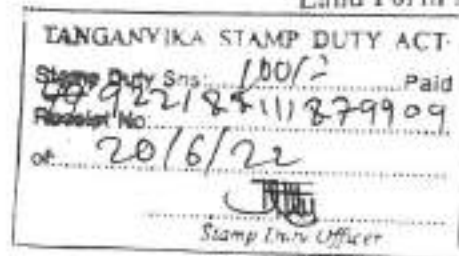 Land Form
TANGANYIKA STAMP DUTY ACT
Stamp Duty Shs. 100/= Paid
Receipt No.
of 20/6/22
Stamp Duty Officer